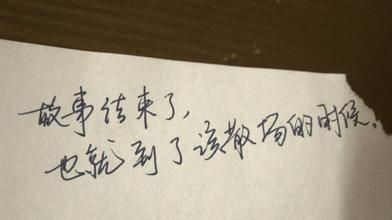 故事结束了,
也就到了该散场的时候.